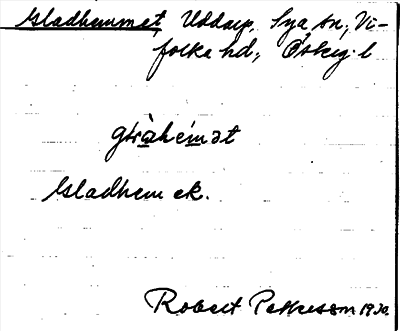 Gladhemmet, Uddarp, Sya sn, Vi-
folka hd, Östeg. l
Gladhem ek.
Robert Petterson 1930.